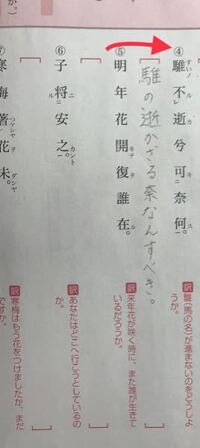 ④ 騅不レ逝兮可奈何。
騅の逝かざる奈なんすべき。
訳 騅(馬の名)が進まないのをどうしようか。
⑤ 明年花開キテ復誰カ在ル。
訳 来年花が咲く時に、また誰が生きているだろうか。
⑥ 子将ニ安之カント。
訳 あなたはどこへ行こうとしているのか。
⑦ 寒梅著ケシヤ花ヲ未ダシヤ。
訳 寒梅はもう花をつけましたか、まだですか。